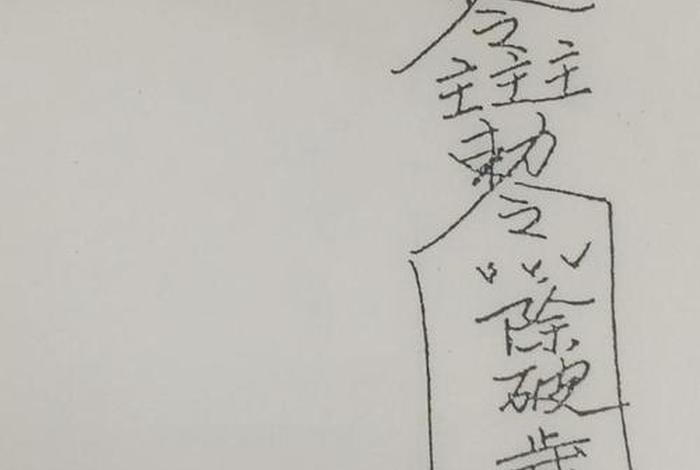 令
主主主
勅
令
除
破